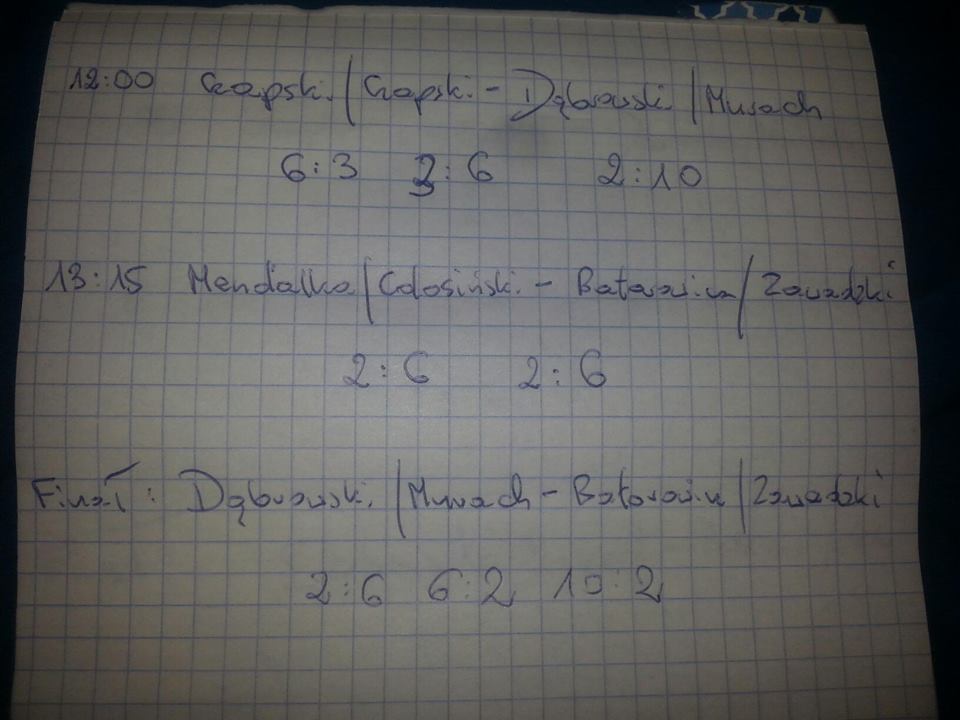 12:00 Czapski/Czapski - Dąbrowski/Murach
6:3 3:6 2:10
13:15 Mendalka/Golosiński - Batorowin/Zawadzki
2:6 2:6
Finał: Dąbrowski/Murach - Batorowin/Zawadzki
2:6 6:2 10:2